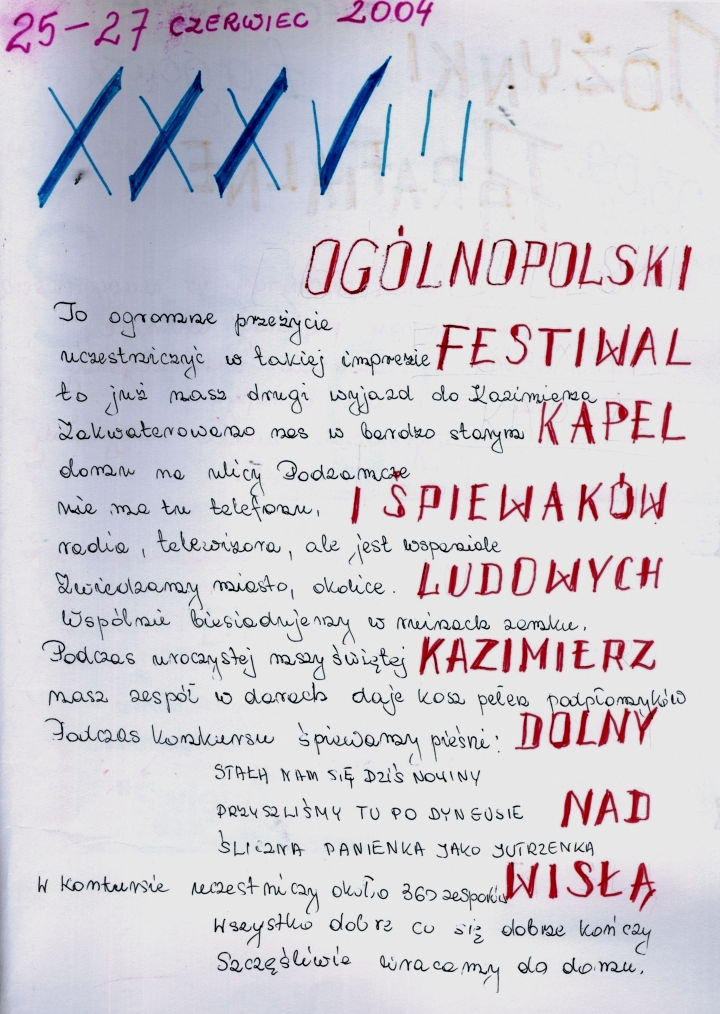 25-27 CZERWIEC 2004
XXXVIII
OGÓLNOPOLSKI
To ogromne przeżycie
uczestniczyć w takiej imprezie FESTIWAL
to już nasz drugi wyjazd do Kazimierza
Zakwaterowano nas w bardzo starym KAPEL
domu na ulicy Podzamcze
nie ma tu telefonu, I ŚPIEWAKÓW
radia, telewizora, ale jest wspaniale
Zwiedzamy miasto, okolice. LUDOWYCH
Wspólnie biesiadujemy w ruinach zamku.
Podczas uroczystej mszy świętej KAZIMIERZ
nasz zespół w darach daje kosz pełen podpłomyków
Podczas konkursu śpiewamy pieśni: DOLNY
STAŁA NAM SIĘ DZIŚ NOWINY
PRZYSZLIŚMY TU PO DYNGUSIE NAD
ŚLICZNA PANIENKA JAKO JUTRZENKA
W konkursie uczestniczy około zespołów WISŁĄ
Wszystko dobrze co się dobrze kończy
Szczęśliwie wracamy do domu.